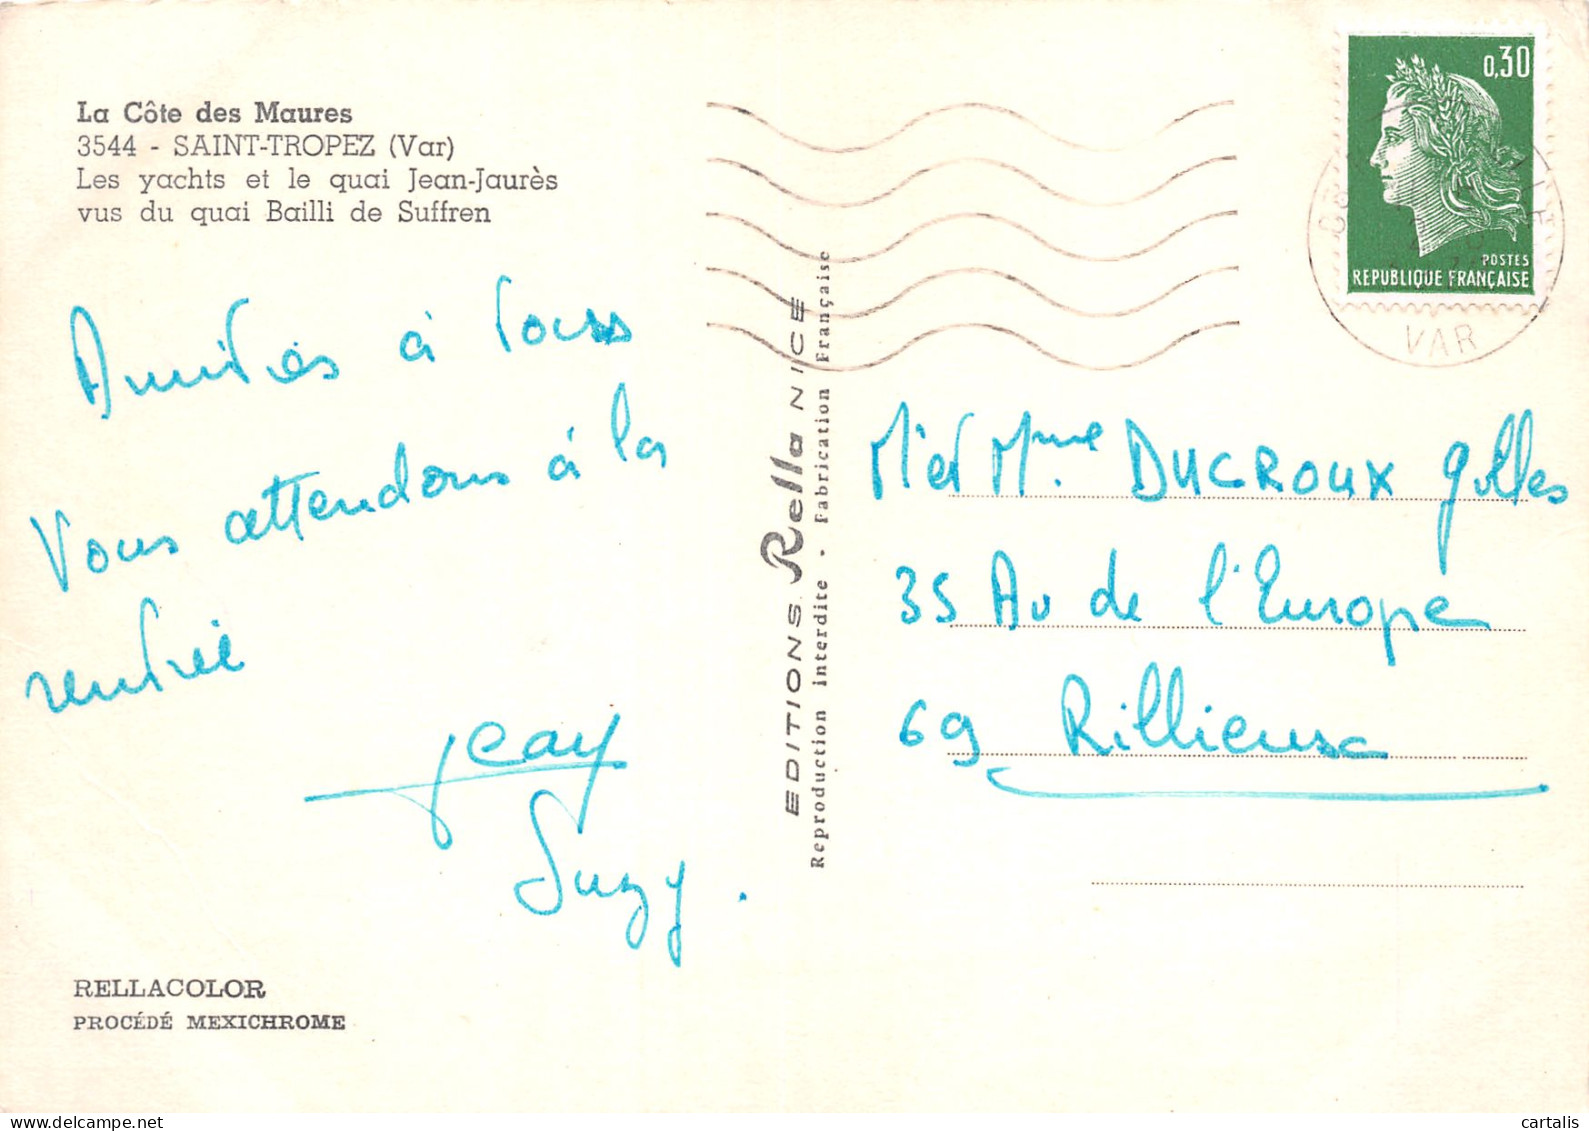 La Côte des Maures
3544 - SAINT-TROPEZ (Var)
Les yachts et le quai Jean-Jaurès
vus du quai Bailli de Suffren
Amitiés à tous
Vous attendons à la
rentrée
Jeay
Suzy.
RELLACOLOR
PROCÉDÉ MEXICHROME
EDITIONS Rella NICE
Reproduction interdite - Fabrication Française
0,30
POSTES
REPUBLIQUE FRANÇAISE
VAR
Mr et Mme DUCROUX Gilles
35 Av de l'Europe
69 Rillieux
cartalis
delcampe.net